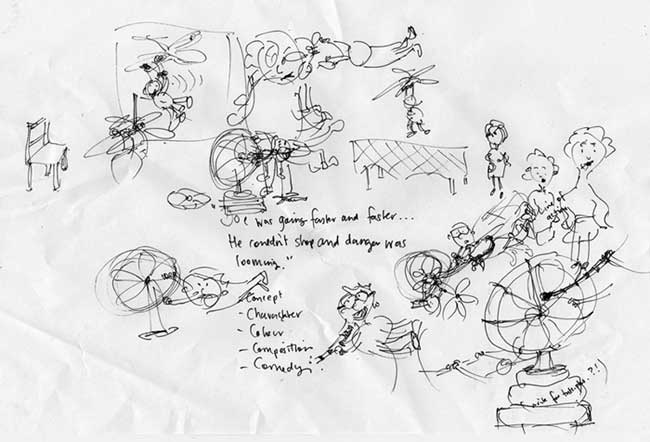 Joe was going faster and faster...
He couldn't stop and danger was
looming."
- Concept
- Charachter
- Colour
- Composition
- Comedy!
Line of
action